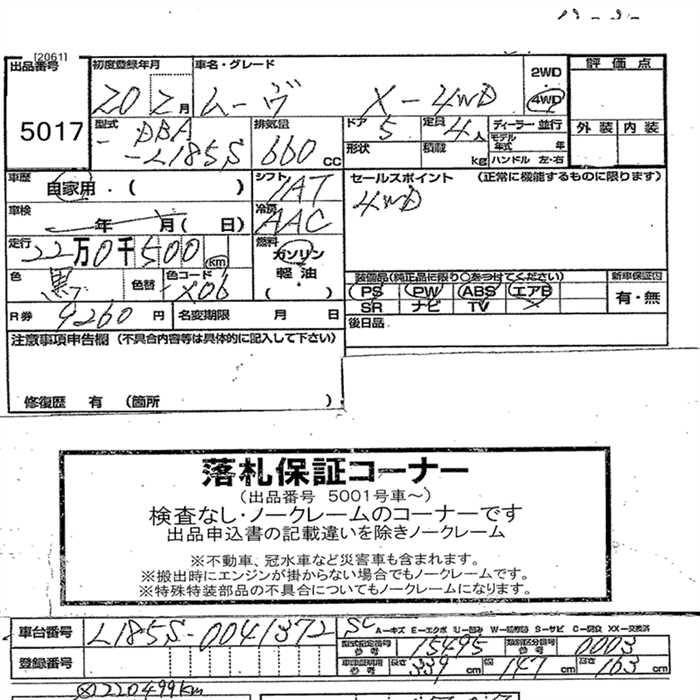 [2061]
出品番号
5017
初度登録年月
20 2月
車名・グレード
ムーヴ X-4WD
2WD
4WD
評価点
外装 内装
型式
DBA
-L185S
排気量
660 cc
ドア 5
形状
定員 4人
積載 kg
ディーラー・並行
モデル年式 年
ハンドル 左・右
車歴
自家用・( )
シフト
IAT
セールスポイント (正常に機能するものに限ります)
4WD
車検
年 月( 日)
冷房
AAC
走行
22万0千500 km
燃料
ガソリン
軽油
・( )
色
黒
色替
色コード
X06
装備品(純正品に限り○をつけてください)
新車保証書
PS PW ABS エアB
SR ナビ TV
有・無
R券 9260円
名変期限 月 日
後日品
注意事項申告欄 (不具合内容等は具体的に記入して下さい)
修復歴 有 (箇所 )
落札保証コーナー
(出品番号 5001号車~)
検査なし・ノークレームのコーナーです
出品申込書の記載違いを除きノークレーム
※不動車、冠水車など災害車も含まれます。
※搬出時にエンジンが掛からない場合でもノークレームです。
※特殊特装部品の不具合についてもノークレームになります。
車台番号 L185S-0041372
A-キズ E-エクボ U-凹み W-補修跡 S-サビ C-腐食 XX-交換済
型式指定番号 参考 15495
類別区分番号 参考 0003
登録番号
車庫証明用 参考
長さ 339 cm 幅 147 cm 高さ 163 cm
220499km